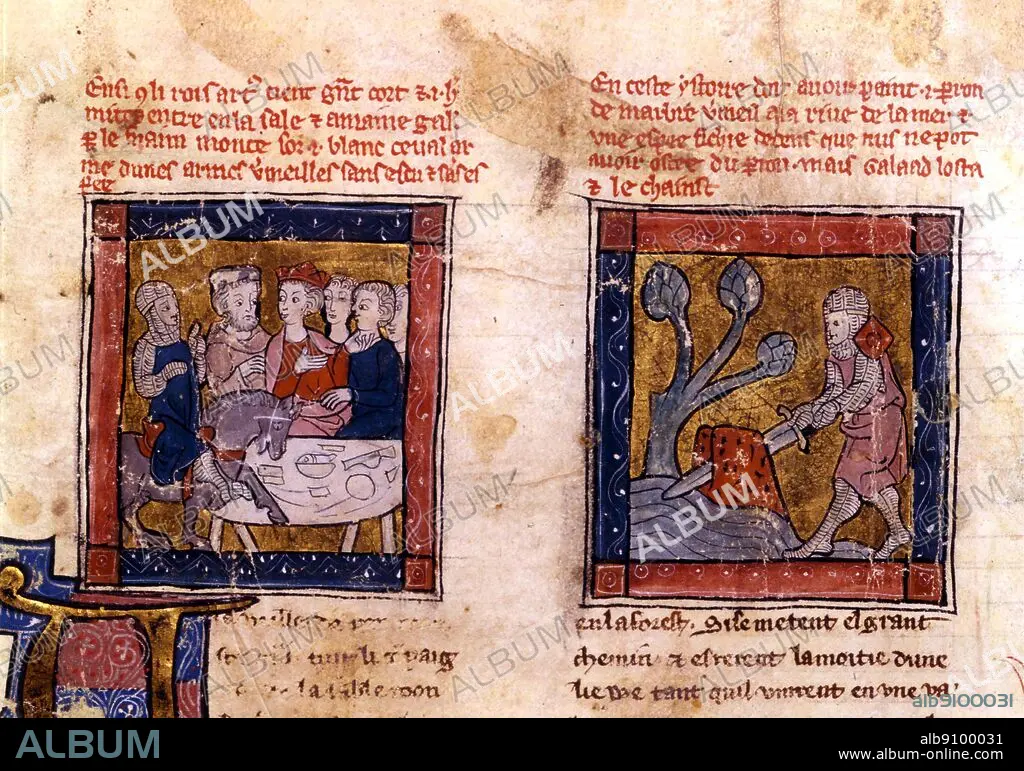 Ensi q̃ li rois art᾽ tient gñt cort ⁊ .i. h̾
entre en la sale ⁊ amaine gal̃.
p̱ le main monte sor .i. blanc ceval ar
me dunes armes v̾meilles sans escu ⁊ sãs es
pee
En ceste ystoire doit avoir paint .i. p̱ron
de marbre v̾meil a la rive de la mer ⁊
vne espee fichie dedens que nus ne pot
avoir ostee du p̱ron . mais Galaad losta
⁊ le chainst
en la forest . Si se metent el grant
chemin ⁊ esrerent la moitie dune
liewe tant quil vinrent en vne va
ALBUM
alb9100031
www.album-online.com